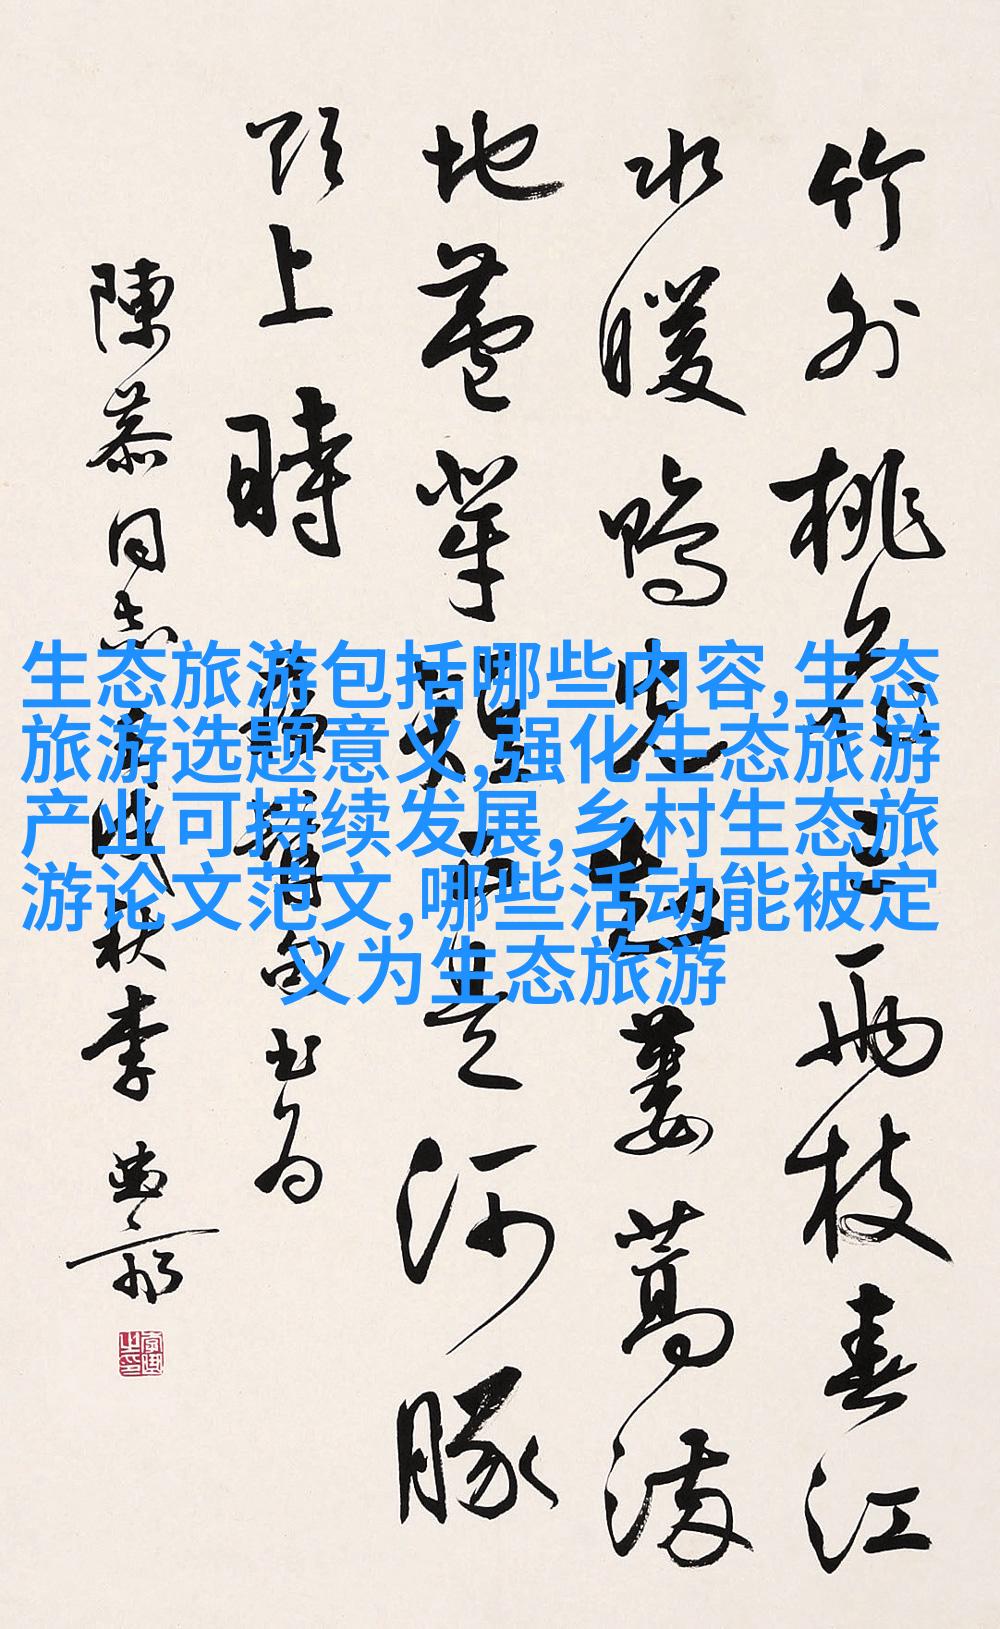 竹外桃花三兩枝春江
水暖鴨先知蔞蒿滿
地蘆芽短正是河豚
欲上時 句书为
陳慕同志 戌秋李
生态旅游包括哪些内容,生态
旅游选题意义,强化生态旅游
产业可持续发展,乡村生态旅
游论文范文,哪些活动能被定
义为生态旅游